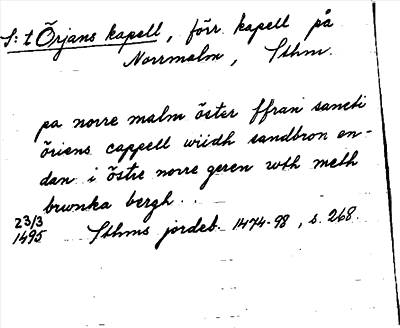 S:t Örjans kapell, förr kapell på
Norrmalm, Sthm.
pa norre malm öster ffran sancti
öriens cappell wiidh sandbron en-
dan i östre norre geren wth meth
brwnka bergh..
23/3
1495 Sthms jordeb. 1474-98, s. 268.